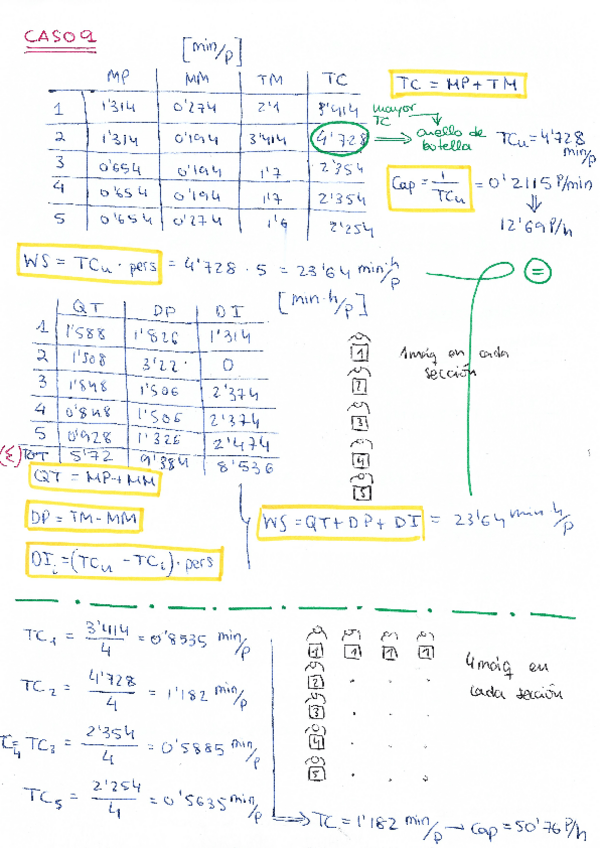 CASO 9
[min/p]
MP MM TM TC
1 1'314 0'274 2'1 3'414
2 1'314 0'194 3'414 4'728
3 0'654 0'194 1'7 2'354
4 0'654 0'194 1'7 2'354
5 0'654 0'274 1'6 2'254
TC = MP + TM
mayor TC
cuello de botella
TCu = 4'728 min/p
Cap = 1/TCu = 0'2115 P/min
12'69 P/h
WS = TCu · pers = 4'728 · 5 = 23'64 min·h/p
=
[min·h/p]
QT DP DI
1 1'588 1'826 1'314
2 1'508 3'22 0
3 1'848 1'506 2'374
4 0'848 1'506 2'374
5 0'928 1'326 2'474
(Σ) TOT 5'72 9'384 8'536
1
2
3
4
5
1 máq en cada sección
QT = MP + MM
DP = TM - MM
DIi = (TCu - TCi) · pers
WS = QT + DP + DI = 23'64 min·h/p
TC1 = 3'414/4 = 0'8535 min/p
TC2 = 4'728/4 = 1'182 min/p
TC4 = TC3 = 2'354/4 = 0'5885 min/p
TC5 = 2'254/4 = 0'5635 min/p
1 1 1 1
2
3
4
5
4 máq en cada sección
TC = 1'182 min/p → Cap = 50'76 P/h